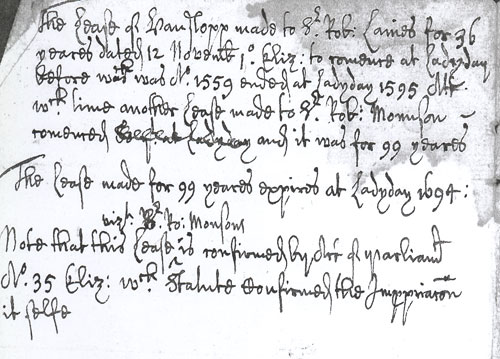 The Lease of Vaustopp made to Sr. Rob: Carnes for 36
yeares dated 12 Novembr. 1o. Eliz: to comence at Ladyday
before wch was Ao. 1559 ended at Ladyday 1595 Att.
wch time another Lease made to Sr. Rob: Monnson
comenced at Ladyday and it was for 99 yeares
The Lease made for 99 yeares expires at Ladyday 1694:
vizt. Sr. Ro: Monsons
Note that this Lease is confirmed by Act of Parliamt
Ao. 35 Eliz: wch Statute Confirmed the
it selfe